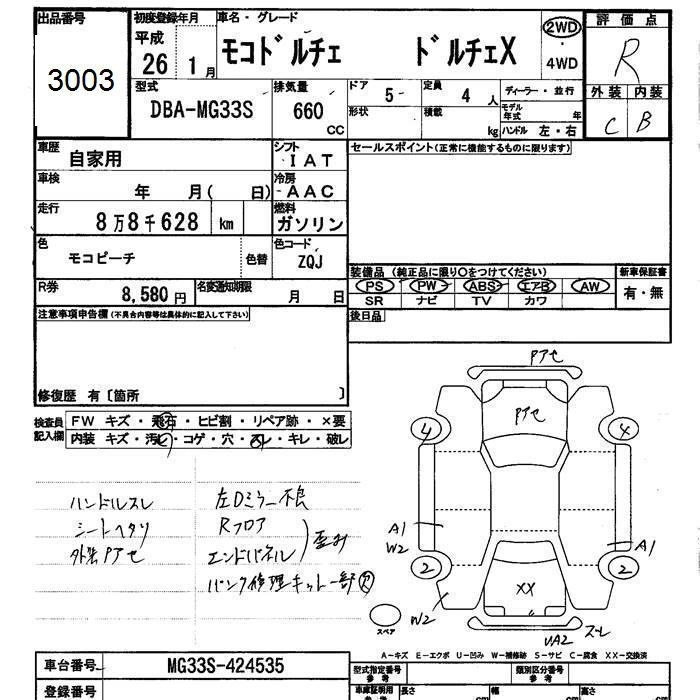 出品番号 初度登録年月 車名・グレード 2WD 評価点
3003 平成 26 1月 モコドルチェ ドルチェX 4WD R
型式 排気量 ドア 5 定員 4人 ディーラー・並行 外装 内装
DBA-MG33S 660 CC 形状 積載 kg モデル年式 年 C B
ハンドル 左・右
車歴 自家用 シフト IAT セールスポイント(正常に機能するものに限ります)
車検 年 月( 日) 冷房 AAC
走行 8万8千628 km 燃料 ガソリン
色 モコピーチ 色替 色コード ZQJ
装備品(純正品に限り〇をつけてください) 新車保証書
R券 8,580円 名変通知期限 月 日 PS PW ABS エアB AW 有・無
SR ナビ TV カワ
注意事項申告欄(不具合内容等は具体的に記入して下さい) 後日品
修復歴 有〔箇所 〕
検査員記入欄 FW キズ・飛石・ヒビ割・リペア跡・×要
内装 キズ・汚レ・コゲ・穴・スレ・キレ・破レ
Pアセ
Pアセ
4 4
ハンドルスレ 左Dミラー不良
シートヘタリ Rフロア
外装Pアセ エンドパネル 歪み
パンク修理キット一部欠
A1 W2 A1
2 2
XX
W2 スペア VA2 スレ
A－キズ E－エクボ U－凹み W－補修跡 S－サビ C－腐食 XX－交換済
車台番号 MG33S-424535 型式指定番号 参考 類別区分番号 参考
登録番号 車庫証明用 参考 長さ cm 幅 cm 高さ cm